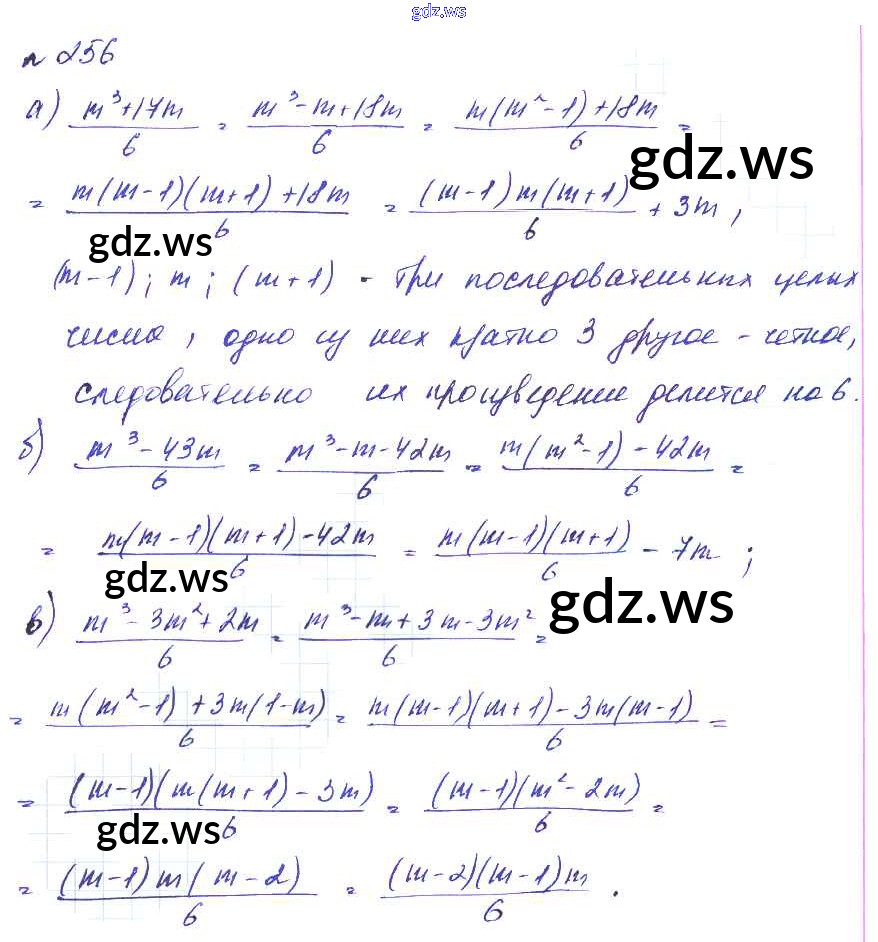 gdz.ws
n 256
а) (m³+17m)/6 = (m³-m+18m)/6 = (m(m²-1)+18m)/6 =
gdz.ws
= (m(m-1)(m+1)+18m)/6 = ((m-1)m(m+1))/6 + 3m,
gdz.ws
(m-1); m; (m+1) - три последовательных целых
числа, одно из них кратно 3 другое - четное,
следовательно их произведение делится на 6.
б) (m³-43m)/6 = (m³-m-42m)/6 = (m(m²-1)-42m)/6 =
= (m(m-1)(m+1)-42m)/6 = (m(m-1)(m+1))/6 - 7m;
gdz.ws
gdz.ws
в) (m³-3m²+2m)/6 = (m³-m+3m-3m²)/6 =
= (m(m²-1)+3m(1-m))/6 = (m(m-1)(m+1)-3m(m-1))/6 =
= ((m-1)(m(m+1)-3m))/6 = ((m-1)(m²-2m))/6 =
gdz.ws
= ((m-1)m(m-2))/6 = ((m-2)(m-1)m)/6.